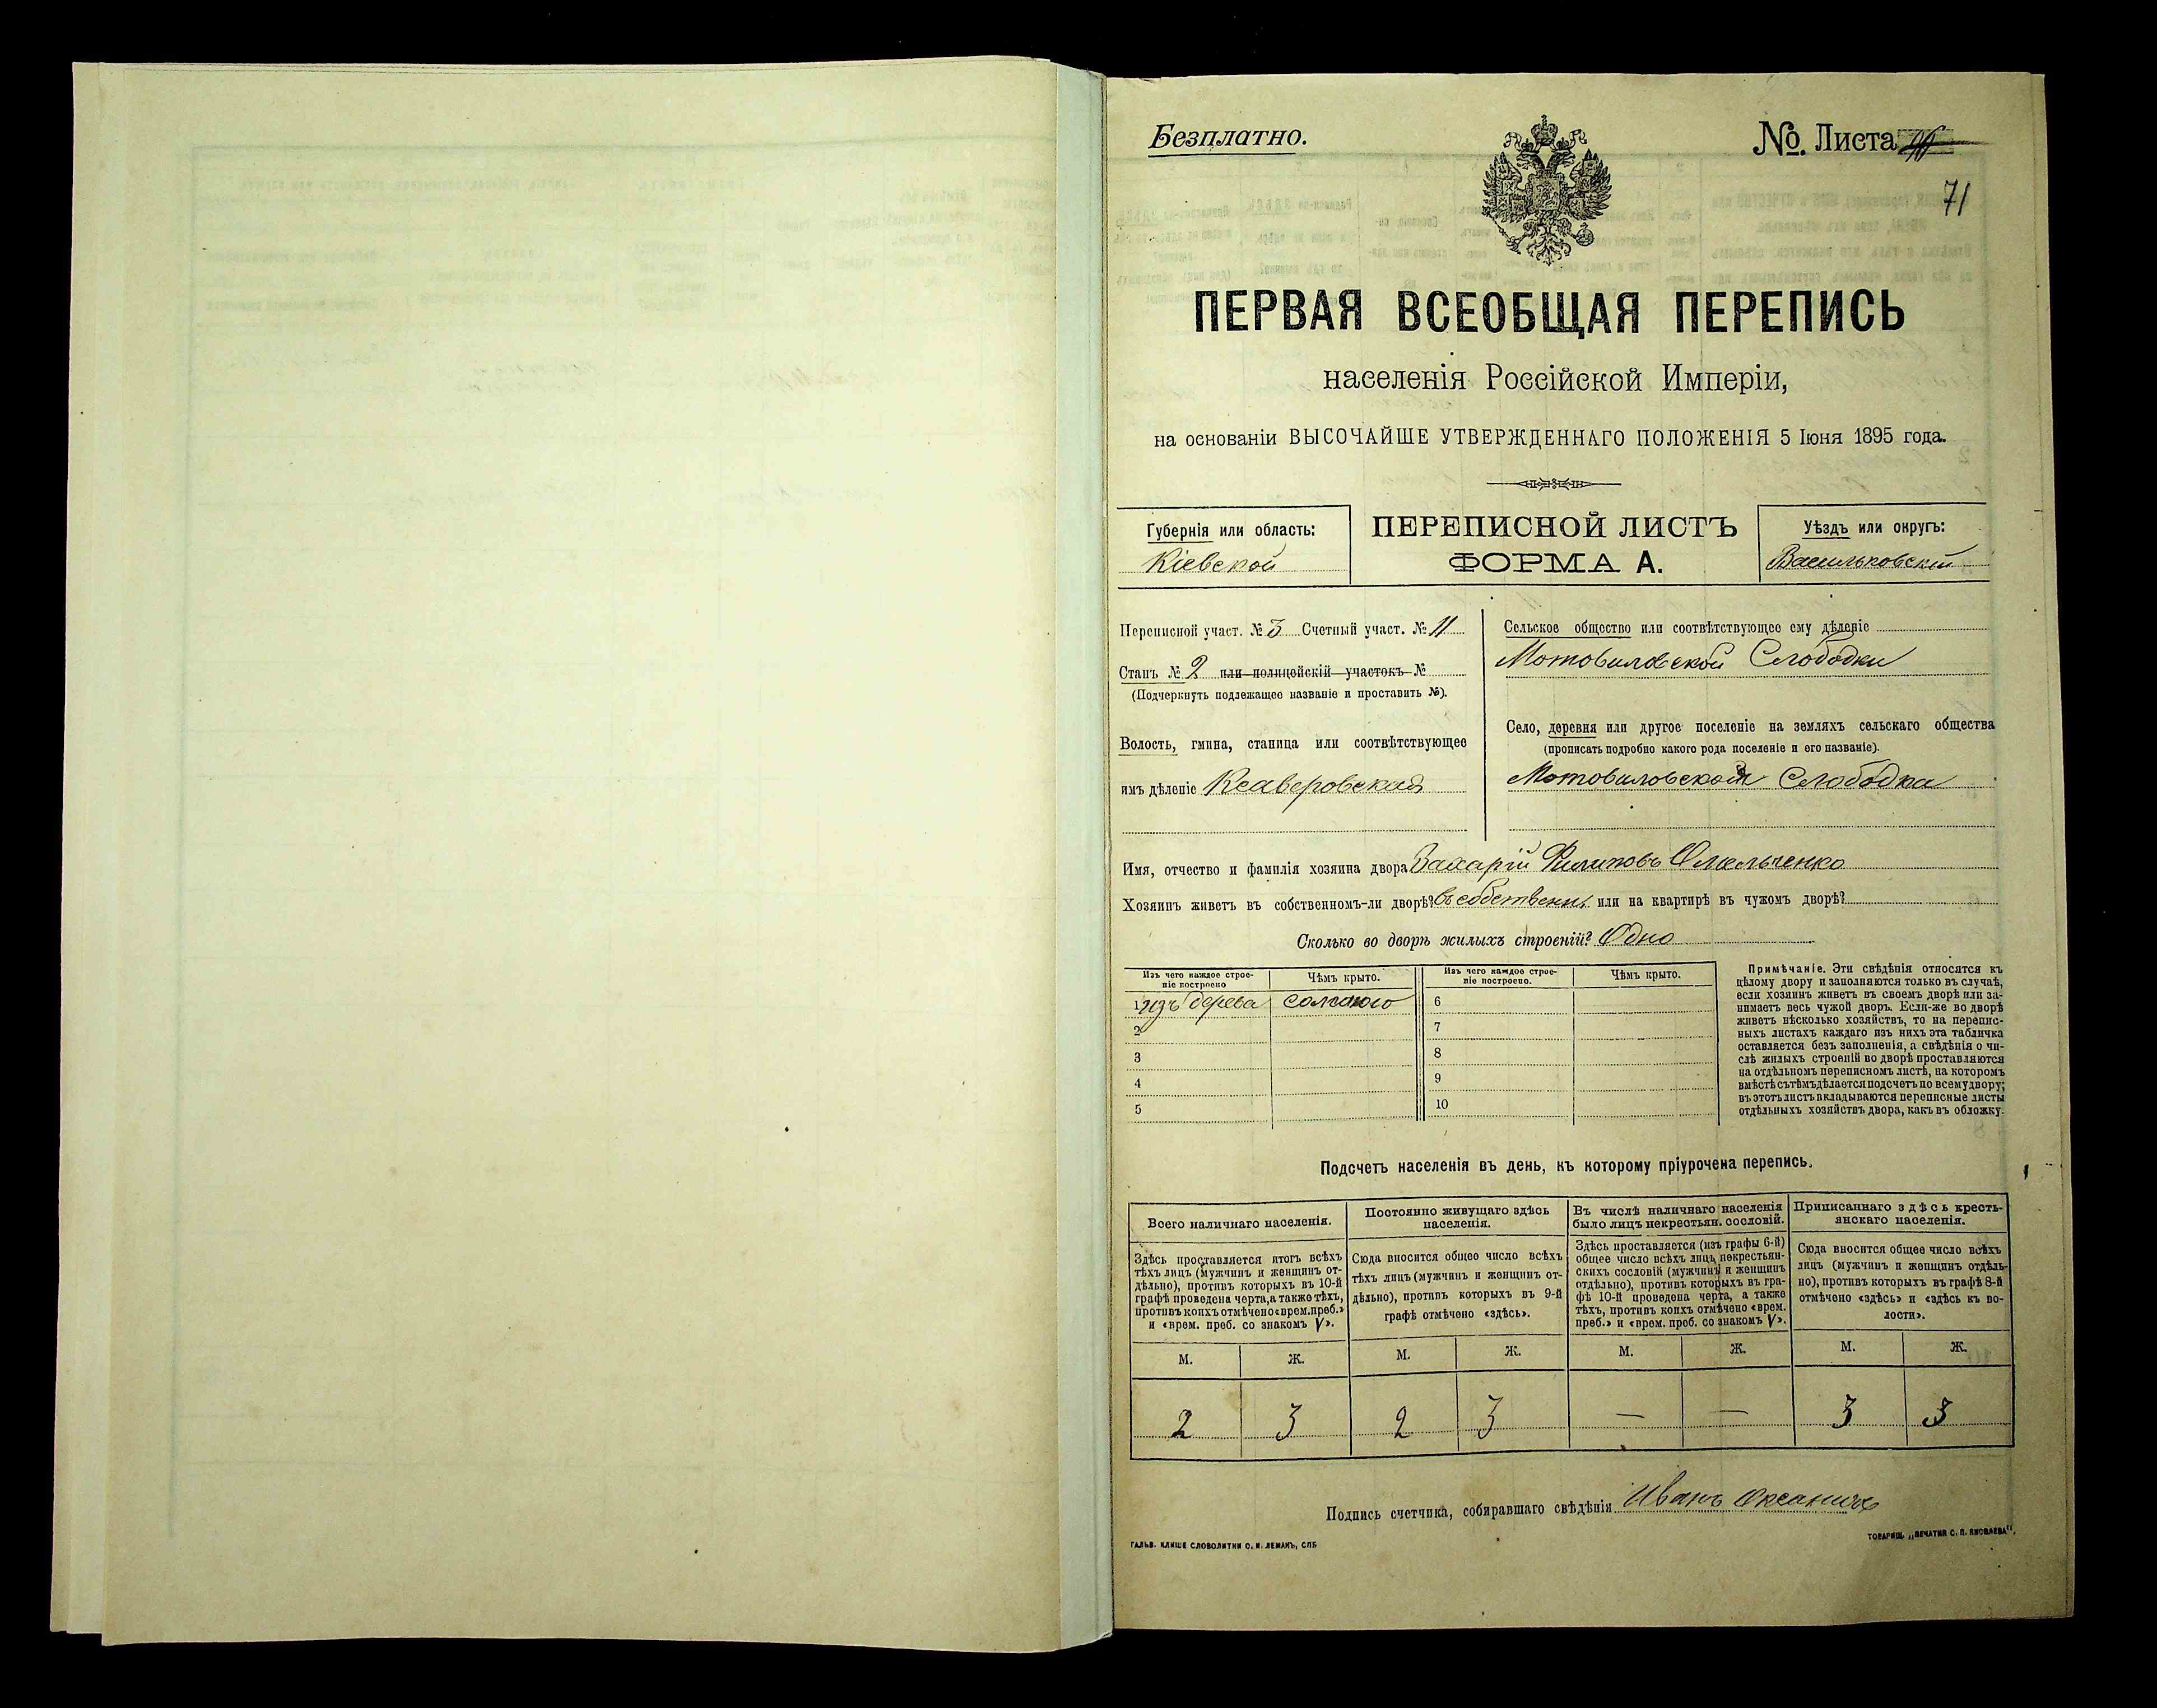 Безплатно.
№. Листа
71
ПЕРВАЯ ВСЕОБЩАЯ ПЕРЕПИСЬ
населенія Россійской Имперіи,
на основаніи ВЫСОЧАЙШЕ УТВЕРЖДЕННАГО ПОЛОЖЕНІЯ 5 Іюня 1895 года.
Губернія или область:
Кіевской
ПЕРЕПИСНОЙ ЛИСТЪ
ФОРМА А.
Уѣздъ или округъ:
Васильковскій
Переписной участ. № 3 Счетный участ. № 11
Станъ № 2 или полицейскій участокъ №
(Подчеркнуть подлежащее названіе и проставить №).
Волость, гмина, станица или соотвѣтствующее
имъ дѣленіе Ксаверовская
Сельское общество или соотвѣтствующее ему дѣленіе
Мотовиловской Слободки
Село, деревня или другое поселеніе на земляхъ сельскаго общества
(прописать подробно какого рода поселеніе и его названіе).
Мотовиловская Слободка
Имя, отчество и фамилія хозяина двора Захарій Филиповъ Омельченко
Хозяинъ живетъ въ собственномъ-ли дворѣ? въ собственн. или на квартирѣ въ чужомъ дворѣ?
Сколько во дворѣ жилыхъ строеній? Одно
Изъ чего каждое строе-
ніе построено
Чѣмъ крыто.
Изъ чего каждое строе-
ніе построено.
Чѣмъ крыто.
1 изъ дерева соломою
2
3
4
5
6
7
8
9
10
Примѣчаніе. Эти свѣдѣнія относятся къ
цѣлому двору и заполняются только въ случаѣ,
если хозяинъ живетъ въ своемъ дворѣ или за-
нимаетъ весь чужой дворъ. Если-же во дворѣ
живетъ нѣсколько хозяйствъ, то на перепис-
ныхъ листахъ каждаго изъ нихъ эта табличка
оставляется безъ заполненія, а свѣдѣнія о чи-
слѣ жилыхъ строеній во дворѣ проставляются
на отдѣльномъ переписномъ листѣ, на которомъ
вмѣстѣ съ тѣмъ дѣлается подсчетъ по всему двору;
въ этотъ листъ вкладываются переписные листы
отдѣльныхъ хозяйствъ двора, какъ въ обложку.
Подсчетъ населенія въ день, къ которому пріурочена перепись.
Всего наличнаго населенія.
Здѣсь проставляется итогъ всѣхъ
тѣхъ лицъ (мужчинъ и женщинъ от-
дѣльно), противъ которыхъ въ 10-й
графѣ проведена черта, а также тѣхъ,
противъ коихъ отмѣчено «врем. преб.»
и «врем. преб. со знакомъ V».
М. Ж.
2 3
Постоянно живущаго здѣсь
населенія.
Сюда вносится общее число всѣхъ
тѣхъ лицъ (мужчинъ и женщинъ от-
дѣльно), противъ которыхъ въ 9-й
графѣ отмѣчено «здѣсь».
М. Ж.
2 3
Въ числѣ наличнаго населенія
было лицъ некрестьян. сословій.
Здѣсь проставляется (изъ графы 6-й)
общее число всѣхъ лицъ некрестьян-
скихъ сословій (мужчинъ и женщинъ
отдѣльно), противъ которыхъ въ гра-
фѣ 10-й проведена черта, а также
тѣхъ, противъ коихъ отмѣчено «врем.
преб.» и «врем. преб. со знакомъ V».
М. Ж.
— —
Приписаннаго здѣсь кресть-
янскаго населенія.
Сюда вносится общее число всѣхъ
лицъ (мужчинъ и женщинъ отдѣль-
но), противъ которыхъ въ графѣ 8-й
отмѣчено «здѣсь» и «здѣсь къ во-
лости».
М. Ж.
3 3
Подпись счетчика, собиравшаго свѣдѣнія Иванъ
ГАЛЬВ. КЛИШЕ СЛОВОЛИТНИ О. И. ЛЕМАНЪ, СПБ
ТОВАРИЩ. „ПЕЧАТНЯ С. П. ЯКОВЛЕВА“.